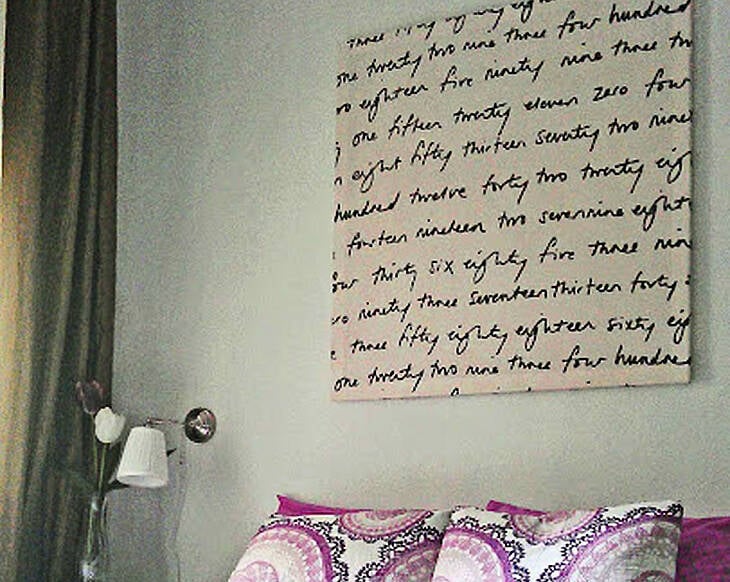 three fifty eighty eigh
one twenty two nine three four hundred
ro eighteen five ninety nine three tw
one fifteen twenty eleven zero four
n eight fifty thirteen seventy two nine
hundred twelve forty two twenty eigh
fourteen nineteen two sevennine eight
our thirty six eighty five three nin
ro ninety three seventeen thirteen forty
e three fifty eighty eighteen sixty eig
one twenty two nine three four hundred